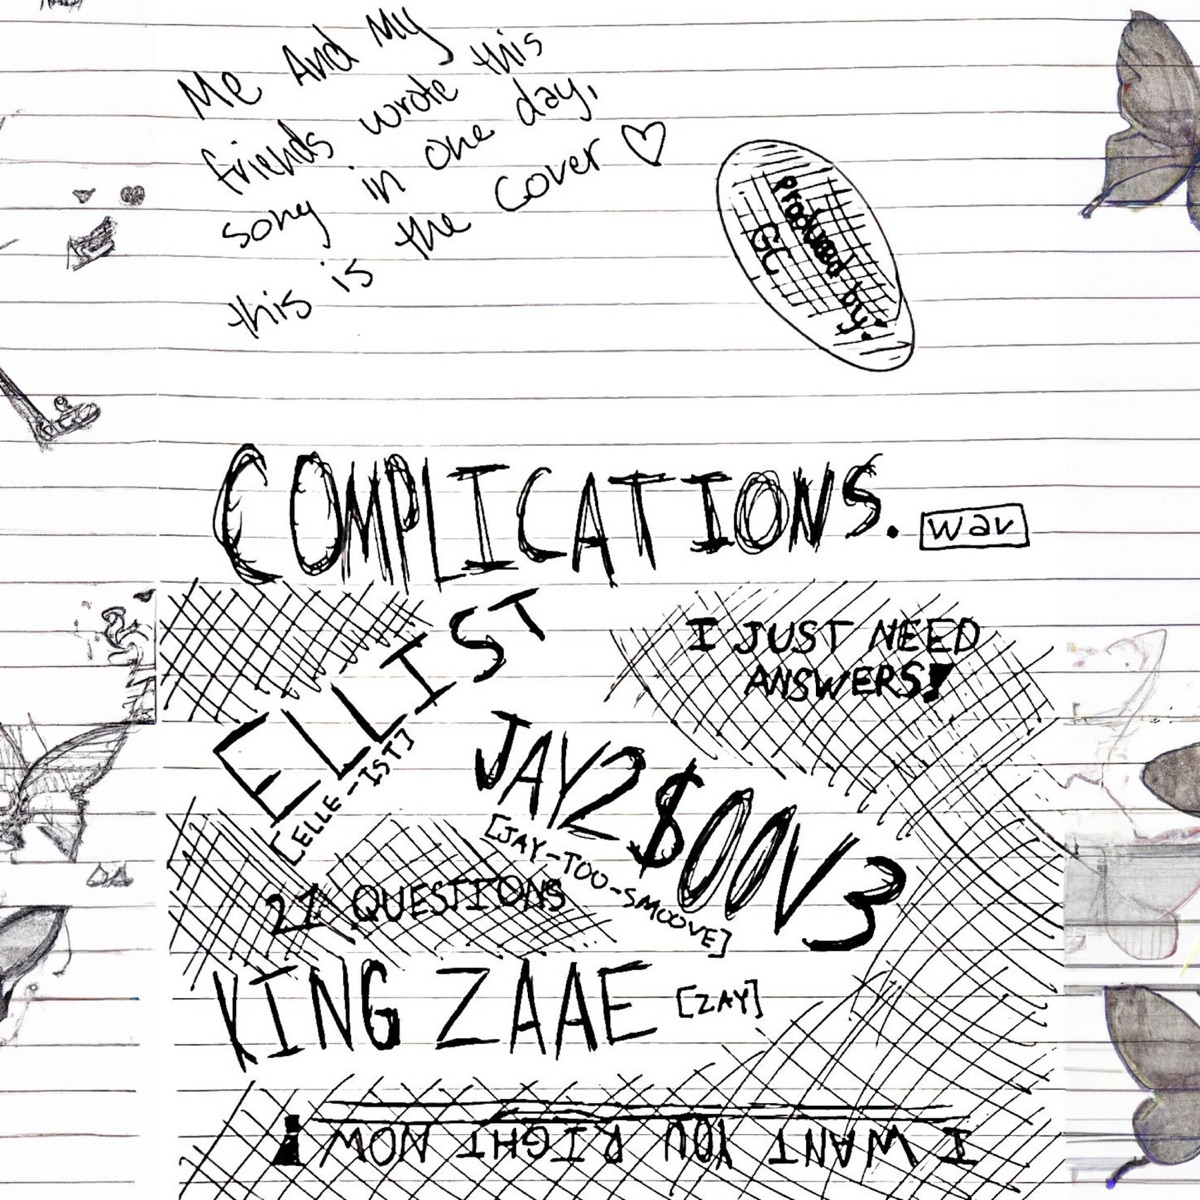 Me And My
friends wrote this
song in one day,
this is the cover
Produced by:
GC
COMPLICATIONS.
wav
ELLIST
[ELLE-IST]
I JUST NEED
ANSWERS!
JAY2$00V3
[JAY-TOO-SMOOVE]
21 QUESTIONS
KING ZAAE
[ZAY]
I WANT YOU RIGHT NOW!